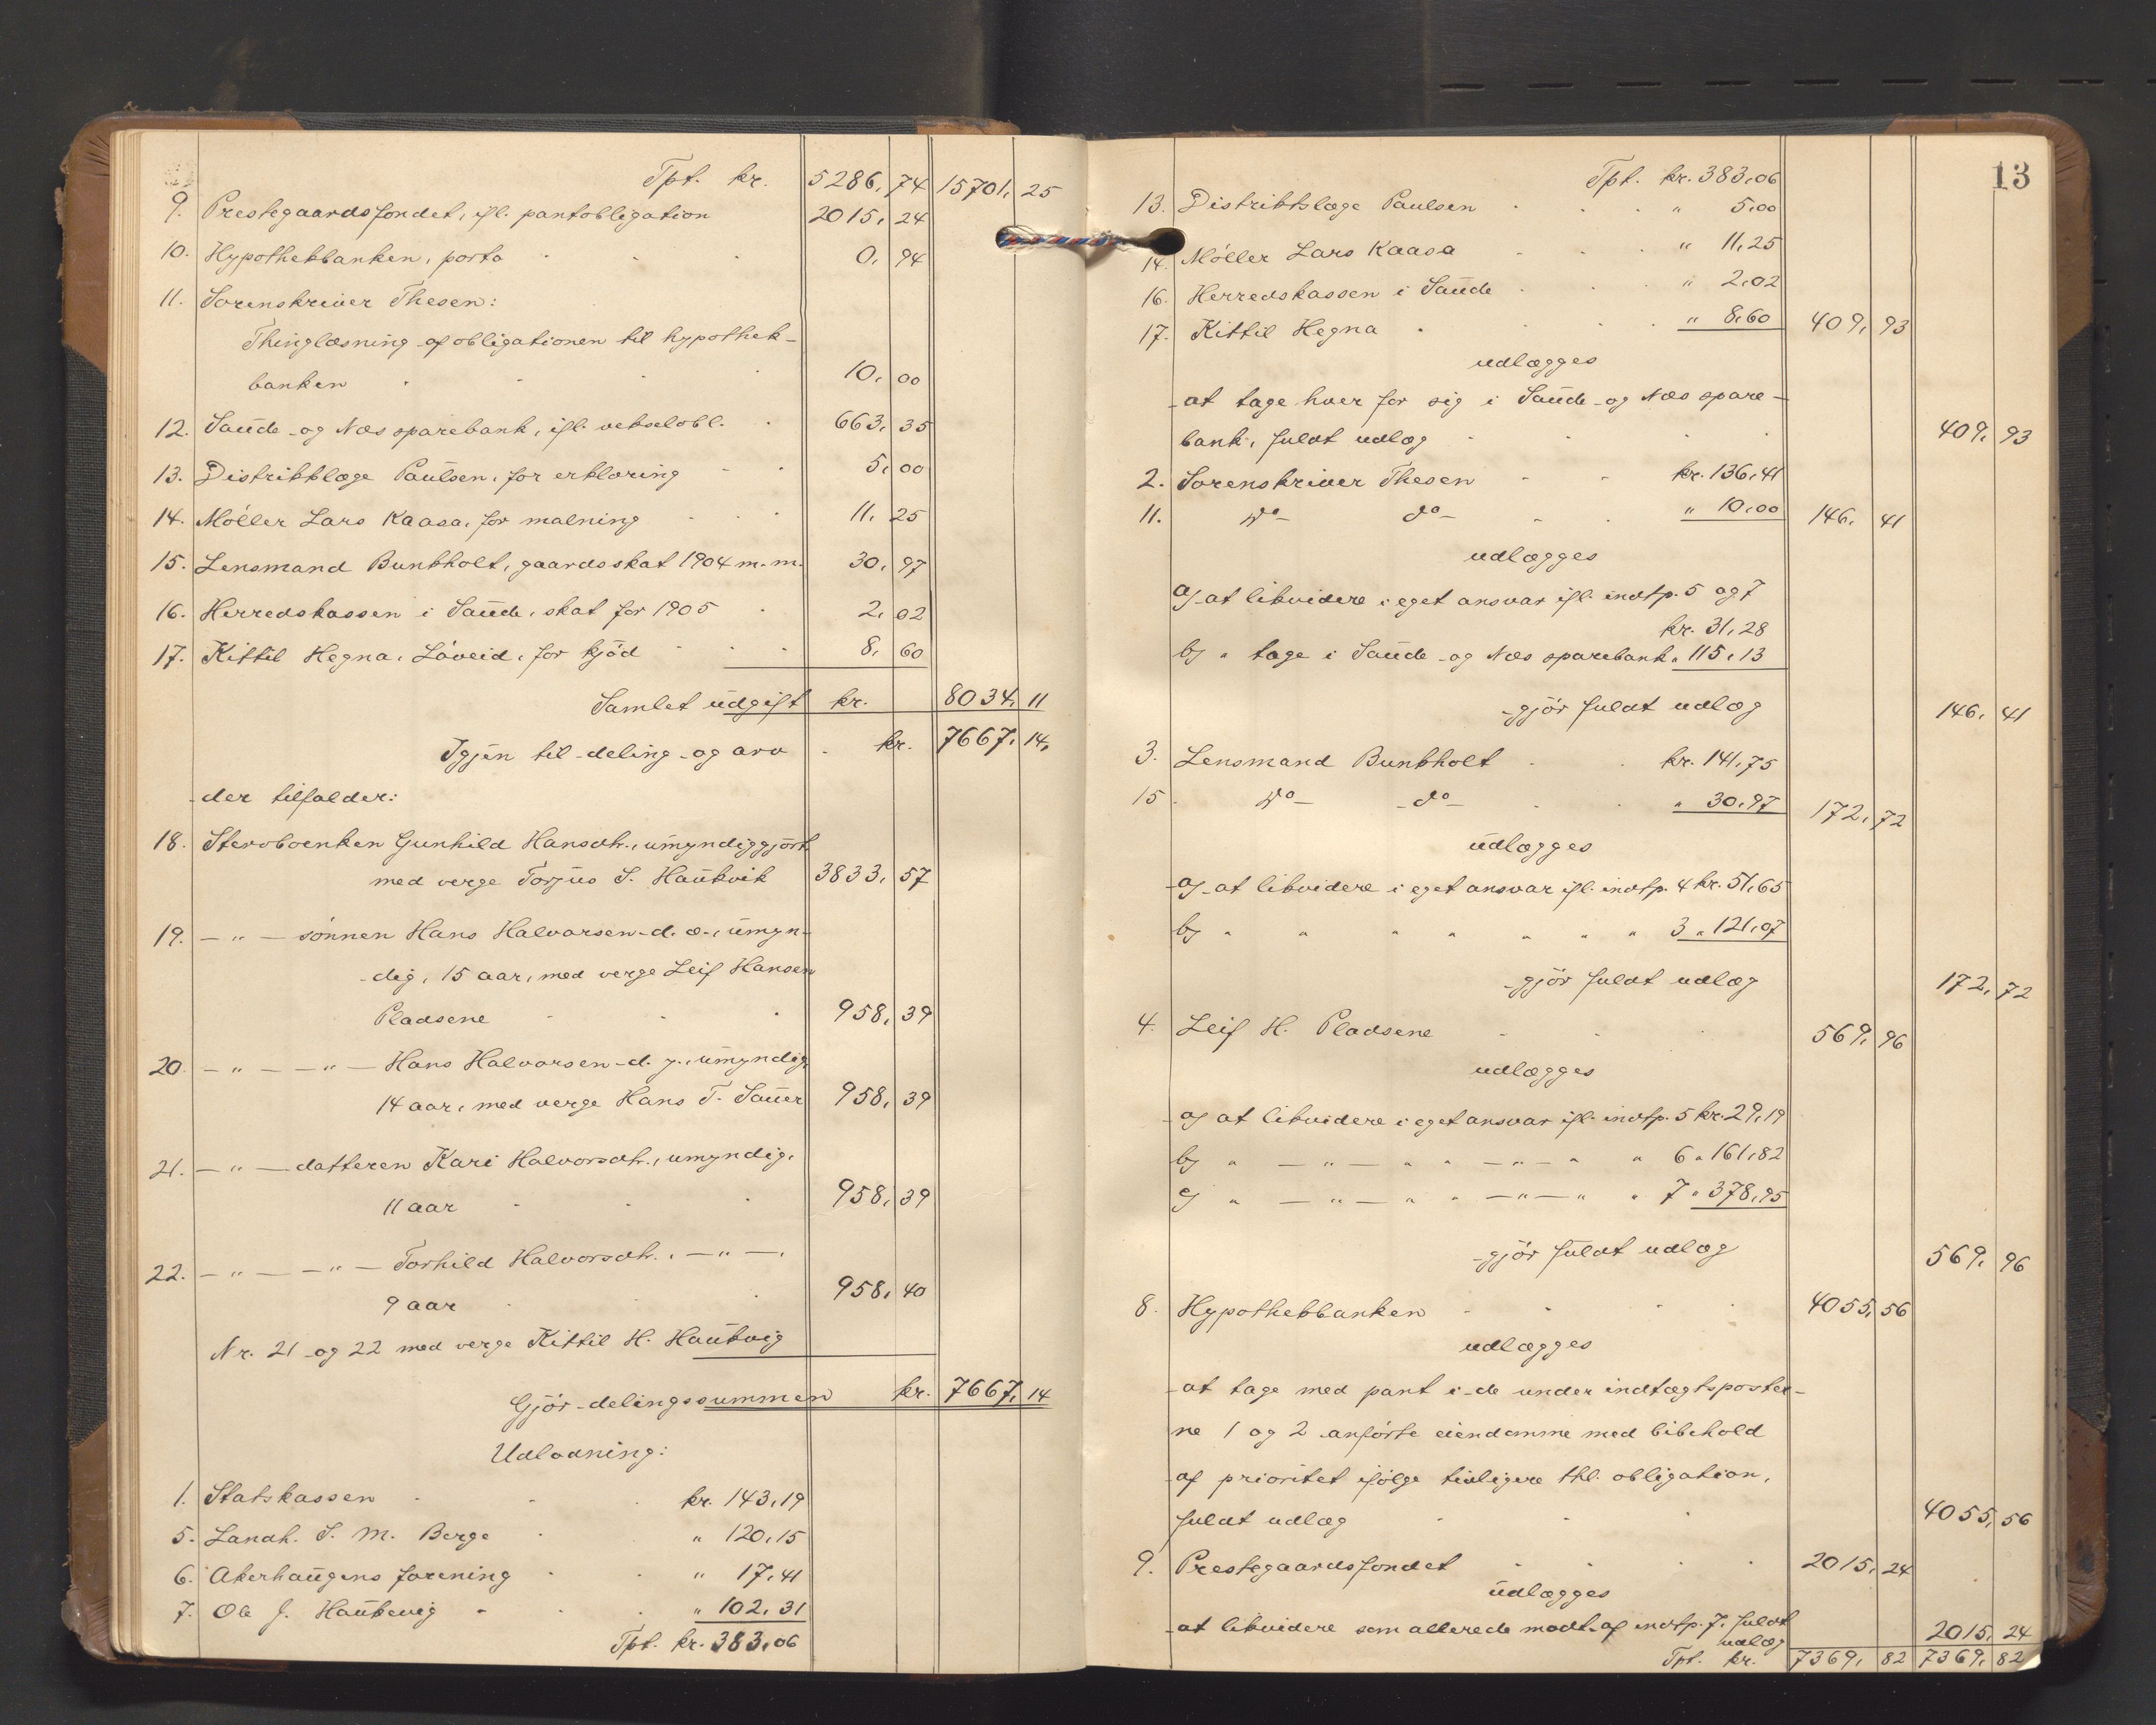 Tpt. kr. 5286,74 15701,25
9. Prestegaardsfondet, ifl. pantobligation 2015,24
10. Hypothekbanken, porto 0,94
11. Sorenskriver Thesen:
Thinglæsning af obligationen til hypothek-
banken 10,00
12. Saude og Næs sparebank, ifl. vekselobl. 663,35
13. Distriktslæge Paulsen, for erklæring 5,00
14. Møller Lars Kaasa, for malning 11,25
15. Lensmand Bunkholt, gaardsskat 1904 m.m. 30,97
16. Herredskassen i Saude, skat for 1905 2,02
17. Kittil Hegna, Løveid, for kjød 8,60
Samlet udgift kr. 8034,11
Igjen til deling og arv kr. 7667,14,
der tilfalder:
18. Stervboenken Gunhild Hansdtr., umyndiggjort
med verge Torjus S. Haukvik 3833,57
19. — " — sønnen Hans Halvorsen d. æ., umyn-
dig, 15 aar, med verge Leif Hansen
Pladsene 958,39
20. — " — — " — Hans Halvorsen d. y., umyndig,
14 aar, med verge Hans T. Sauer 958,39
21. — " — datteren Kari Halvorsdtr., umyndig,
11 aar 958,39
22. — " — — " — Torhild Halvorsdtr., — " —,
9 aar 958,40
Nr. 21 og 22 med verge Kittil H. Haukvig
Gjør delingssummen kr. 7667,14
Udlodning:
1. Statskassen kr. 143,19
5. Landh. S. M. Berge " 120,15
6. Akerhaugens forening " 17,41
7. Ole J. Haukevig " 102,31
Tpt. kr. 383,06
13
Tpt. kr. 383,06
13. Distriktslæge Paulsen " 5,00
14. Møller Lars Kaasa " 11,25
16. Herredskassen i Saude " 2,02
17. Kittil Hegna " 8,60 409,93
udlægges
at tage hver for sig i Saude og Næs spare-
bank, fuldt udlæg 409,93
2. Sorenskriver Thesen kr. 136,41
11. do do " 10,00 146,41
udlægges
a) at likvidere i eget ansvar ifl. indtp. 5 og 7
kr. 31,28
b) " tage i Saude og Næs sparebank " 115,13
gjør fuldt udlæg 146,41
3. Lensmand Bunkholt kr. 141,75
15. do do " 30,97 172,72
udlægges
a) at likvidere i eget ansvar ifl. indtp. 4 kr. 51,65
b) " " " " " " " 3 " 121,07
gjør fuldt udlæg 172,72
4. Leif H. Pladsene 569,96
udlægges
a) at likvidere i eget ansvar ifl. indtp. 5 kr. 29,19
b) " — " — " " — " — " " 6 " 161,82
c) " — " — " " — " — " " 7 " 378,95
gjør fuldt udlæg 569,96
8. Hypothekbanken 4055,56
udlægges
at tage med pant i de under indtægtsposter-
ne 1 og 2 anførte eiendomme med bibehold
af prioritet ifølge tidligere thl. obligation,
fuldt udlæg 4055,56
9. Prestegaardsfondet 2015,24
udlægges
at likvidere som allerede modt. af indtp. 7, fuldt
udlæg 2015,24
Tpt. kr. 7369,82 7369,82